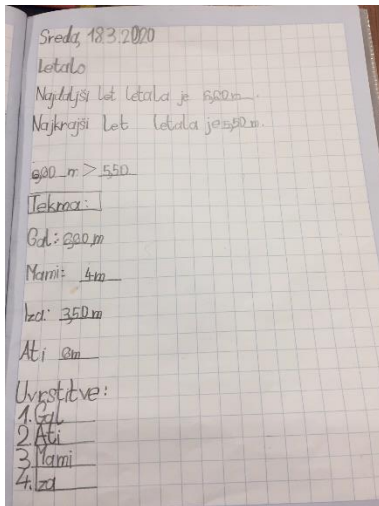 Sreda, 18.3.2020
Letalo
Najdaljši let letala je 6,00 m.
Najkrajši let letala je 5,50 m.
6,00 m > 5,50
Tekma:
Gal: 6,00 m
Mami: 4 m
Iza: 3,50 m
Ati m
Uvrstitve:
1. Gal
2. Ati
3. Mami
4. Iza